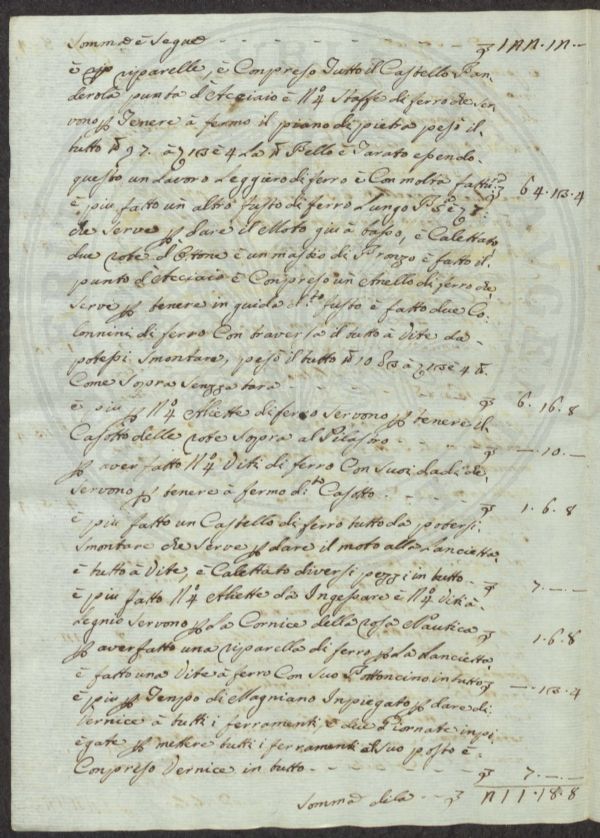 Somma è Segue - - - - - - - - £
è riparelle, è Conpreso Tutto il Castello
derola punta d'Acciaio è N.º 4 Staffe di ferro che Ser
vono p Tenere à fermo il piano di pietra pesò il
tutto ℔ 97. à è 4 La ℔ Fello è Tarato
questo, un Lavoro Leggiero di ferro è Con molta fattu: £ 64.13.4
è più fatto un altro fusto di ferro Lungo
che Serve p dare il Moto giù à basso, è Calettato
due rote d'Ottone è un maschio di Bronzo è fatto il
punto d'Acciaio è Conpreso un Anello di ferro che
Serve p tenere in guida d.to fusto è fatto due Co:
lonnini di ferro Con traversa il tutto à Vite da
potersi Smontare, pesò il tutto ℔ 10 à è 4 ℔
Come Sopra Senza tara - - - - £ 6.16.8
è più p N.º 4 Aliette di ferro Servono p tenere il
Casotto delle rote Sopra al Pilastro - - £ —.10.—
p aver fatto N.º 4 Viti di ferro Con Suoi dadi che
Servono p tenere à fermo d.to Casotto - - - - £ 1.6.8
è più fatto un Castello di ferro tutto da potersi
Smontare che Serve p dare il moto alla Lancietta
è tutto à Vite, è Calettato diversi pezzi in tutto - £ 7.—.—
è più fatto N.º 4 Aliette da Ingessare è N.º 4 Viti à
Legnio Servono p La Cornice della rosa Nautica £ 1.6.8
p aver fatto una riparella di ferro p La Lancietta
è fatto una Vite à ferro Con Suo Bottoncino in tutto £ —.13.4
è più p Tempo di Magniano Inpiegato p dare di
Vernice à tutti i ferramenti, è due Giornate inpi
egate p mettere tutti i ferramenti al Suo posto è
Conpreso Vernice in tutto - - - - - - £ 7.—.—
Somma di la - - £ 18.8